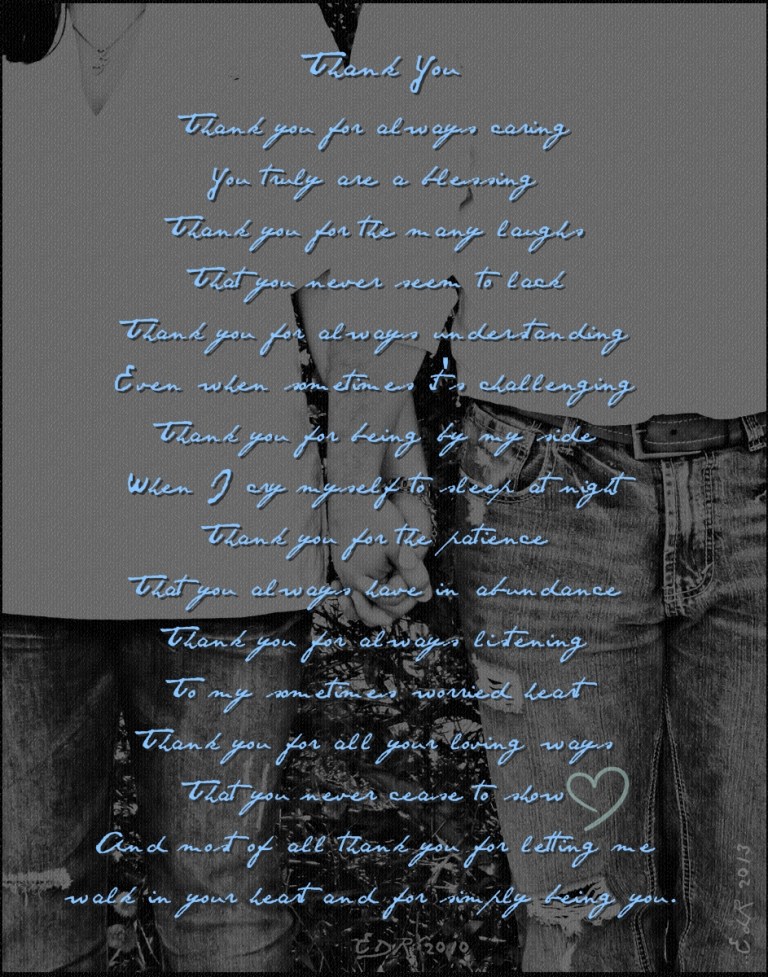 Thank You
Thank you for always caring
You truly are a blessing
Thank you for the many laughs
That you never seem to lack
Thank you for always understanding
Even when sometimes it's challenging
Thank you for being by my side
When I cry myself to sleep at night
Thank you for the patience
That you always have in abundance
Thank you for always listening
To my sometimes worried heart
Thank you for all your loving ways
That you never cease to show
And most of all thank you for letting me
walk in your heart and for simply being you.
EDR 2010
EDR 2013